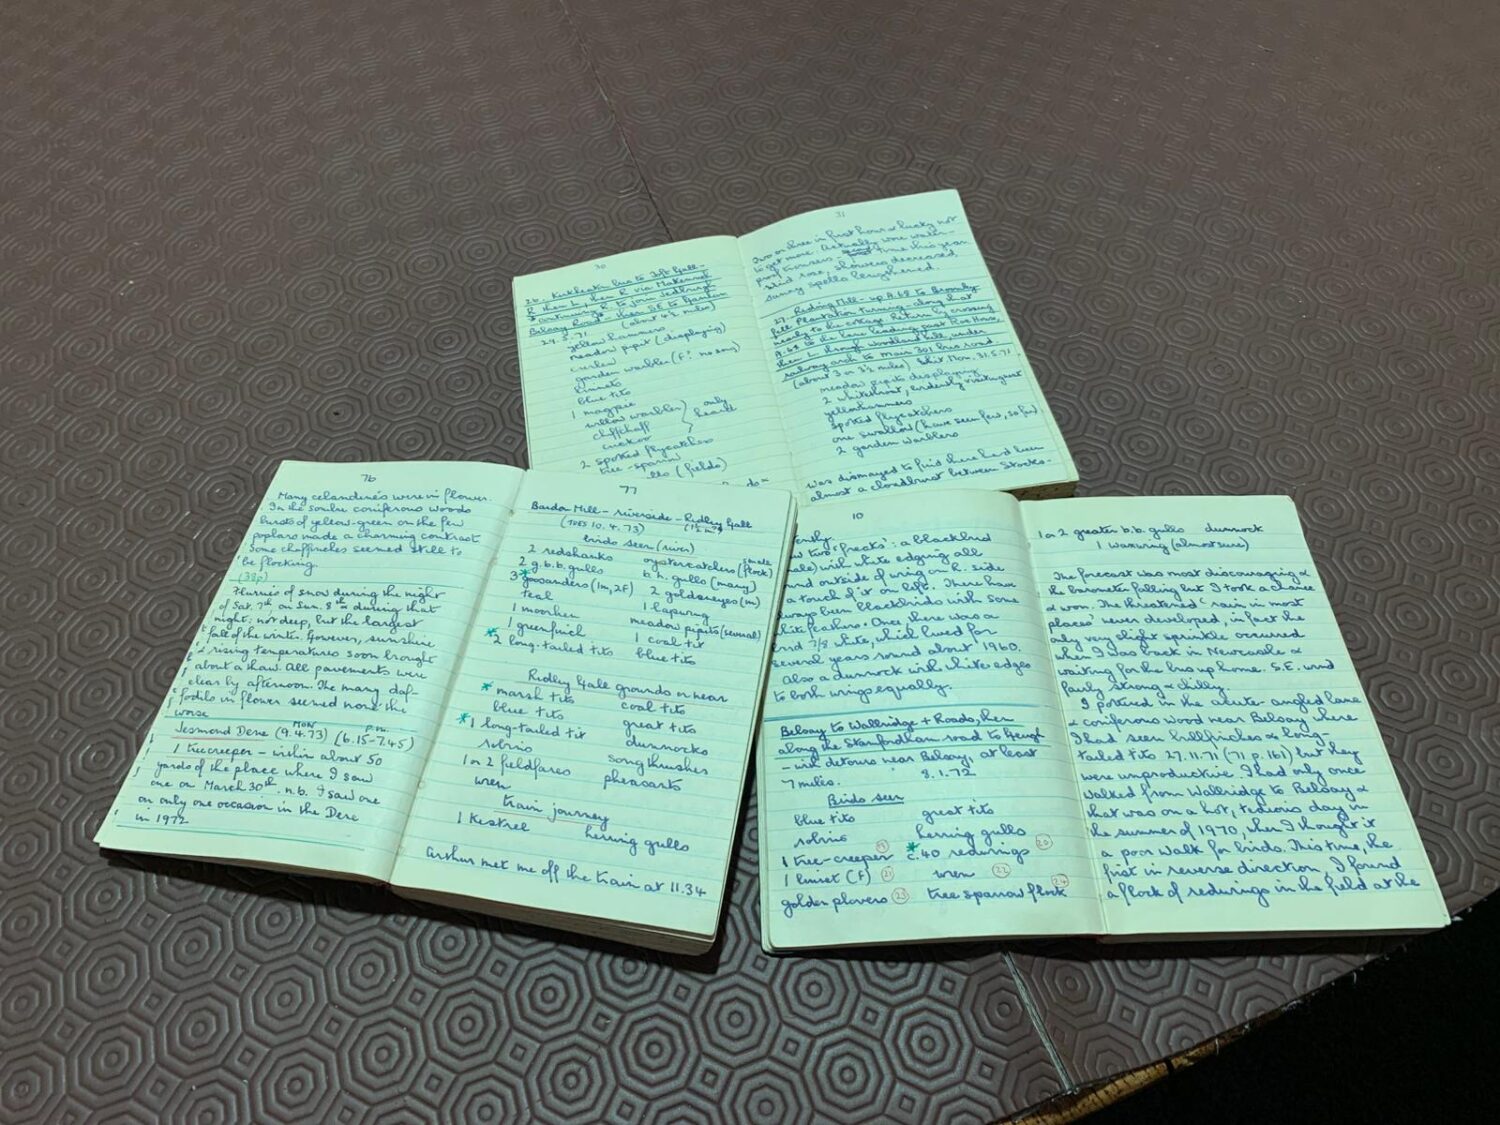 30
26. Kirkheaton bus to
R then L, then R via
continuing R to join Jedburgh
Belsay Road then S.E to
(about 4½ miles)
24.5.71
yellowhammers
meadow pipit (displaying)
curlew
garden warbler (f? no song)
linnets
blue tits
1 magpie
willow warbler } only
chiffchaff } heard
cuckoo
2 spotted flycatchers
tree-sparrow
(fields)
31
Two or three in first hour & lucky not
to get more. Actually wore water-
proof trousers - second time this year.
Wind rose, showers decreased,
sunny spells lengthened.
27. Riding Mill - up A.68 to Broomley
fell Plantation turning - along that
nearly to the
Return by crossing
A.68 to the lane leading past Roe House,
then L through woodland hill, under
railway arch to Main 301 bus road
(about 3 or 3½ miles) Whit Mon. 31.5.71
meadow pipits displaying
2 whitethroat, evidently visiting nest
yellowhammers
spotted flycatchers
one swallow (have seen few, so far)
2 garden warblers
Was dismayed to find there had been
almost a cloudburst between Stocks-
76
Many celandines were in flower.
In the sombre coniferous woods
bursts of yellow-green on the few
poplars made a charming contrast
Some chaffinches seemed still to
be flocking.
(33p)
Flurries of snow during the night
of Sat. 7th, on Sun. 8th & during that
night; not deep, but the largest
fall of the winter. However, sunshine
& rising temperatures soon brought
about a thaw. All pavements were
clear by afternoon. The many daf-
fodils in flower seemed none the
worse
Jesmond Dene (9.4.73) MON (6.15-7.45) p.m.
1 treecreeper - within about 50
yards of the place where I saw
one on March 30th. n.b. I saw one
on only one occasion in the Dene
in 1972
77
Bardon Mill - riverside - Ridley Hall
(TUES 10.4.73) (1½ m)
birds seen (river)
2 redshanks oystercatchers (small flock)
2 g.b.b. gulls b.h. gulls (many)
3* goosanders (1m, 2F) 2 goldeneyes (m)
teal 1 lapwing
1 moorhen meadow pipits (several)
1 greenfinch 1 coal tit
*2 long-tailed tits blue tits
Ridley Hall grounds or near
* marsh tits coal tits
blue tits great tits
*1 long-tailed tit dunnocks
robins songthrushes
1 or 2 fieldfares pheasants
wren
train journey
1 Kestrel herring gulls
Arthur met me off the train at 11.34
10
two 'freaks': a blackbird
with white edging all
round outside of wing on R. side
& a touch of it on left. There have
always been blackbirds with some
white feathers. Once, there was a
bird 7/8 white, which lived for
several years round about 1960.
Also a dunnock with white edges
to both wings equally.
Belsay to Wallridge + Roads, then
along the Stamfordham road to
- with detours near Belsay, at least
7 miles. 8.1.72
Birds seen
blue tits great tits
robins herring gulls
1 tree-creeper (19) * c.40 redwings (20)
1 linnet (f) (21) wren (22)
golden plovers (23) tree sparrow flock (24)
1 or 2 greater b.b. gulls dunnock
1 waxwing (almost sure)
The forecast was most discouraging &
the barometer falling but I took a chance
& won. The threatened 'rain in most
places' never developed, in fact the
only very slight sprinkle occurred
when I was back in Newcastle &
waiting for the bus up home. S.E. wind
fairly strong & chilly.
I pottered in the acute-angled lane
& coniferous wood near Belsay where
I had seen bullfinches & long-
tailed tits 27.11.71 (71 p.161) but they
were unproductive. I had only once
walked from Wallridge to Belsay &
that was on a hot, tedious day in
the summer of 1970, when I thought it
a poor walk for birds. This time, the
first in reverse direction, I found
a flock of redwings in the field at the